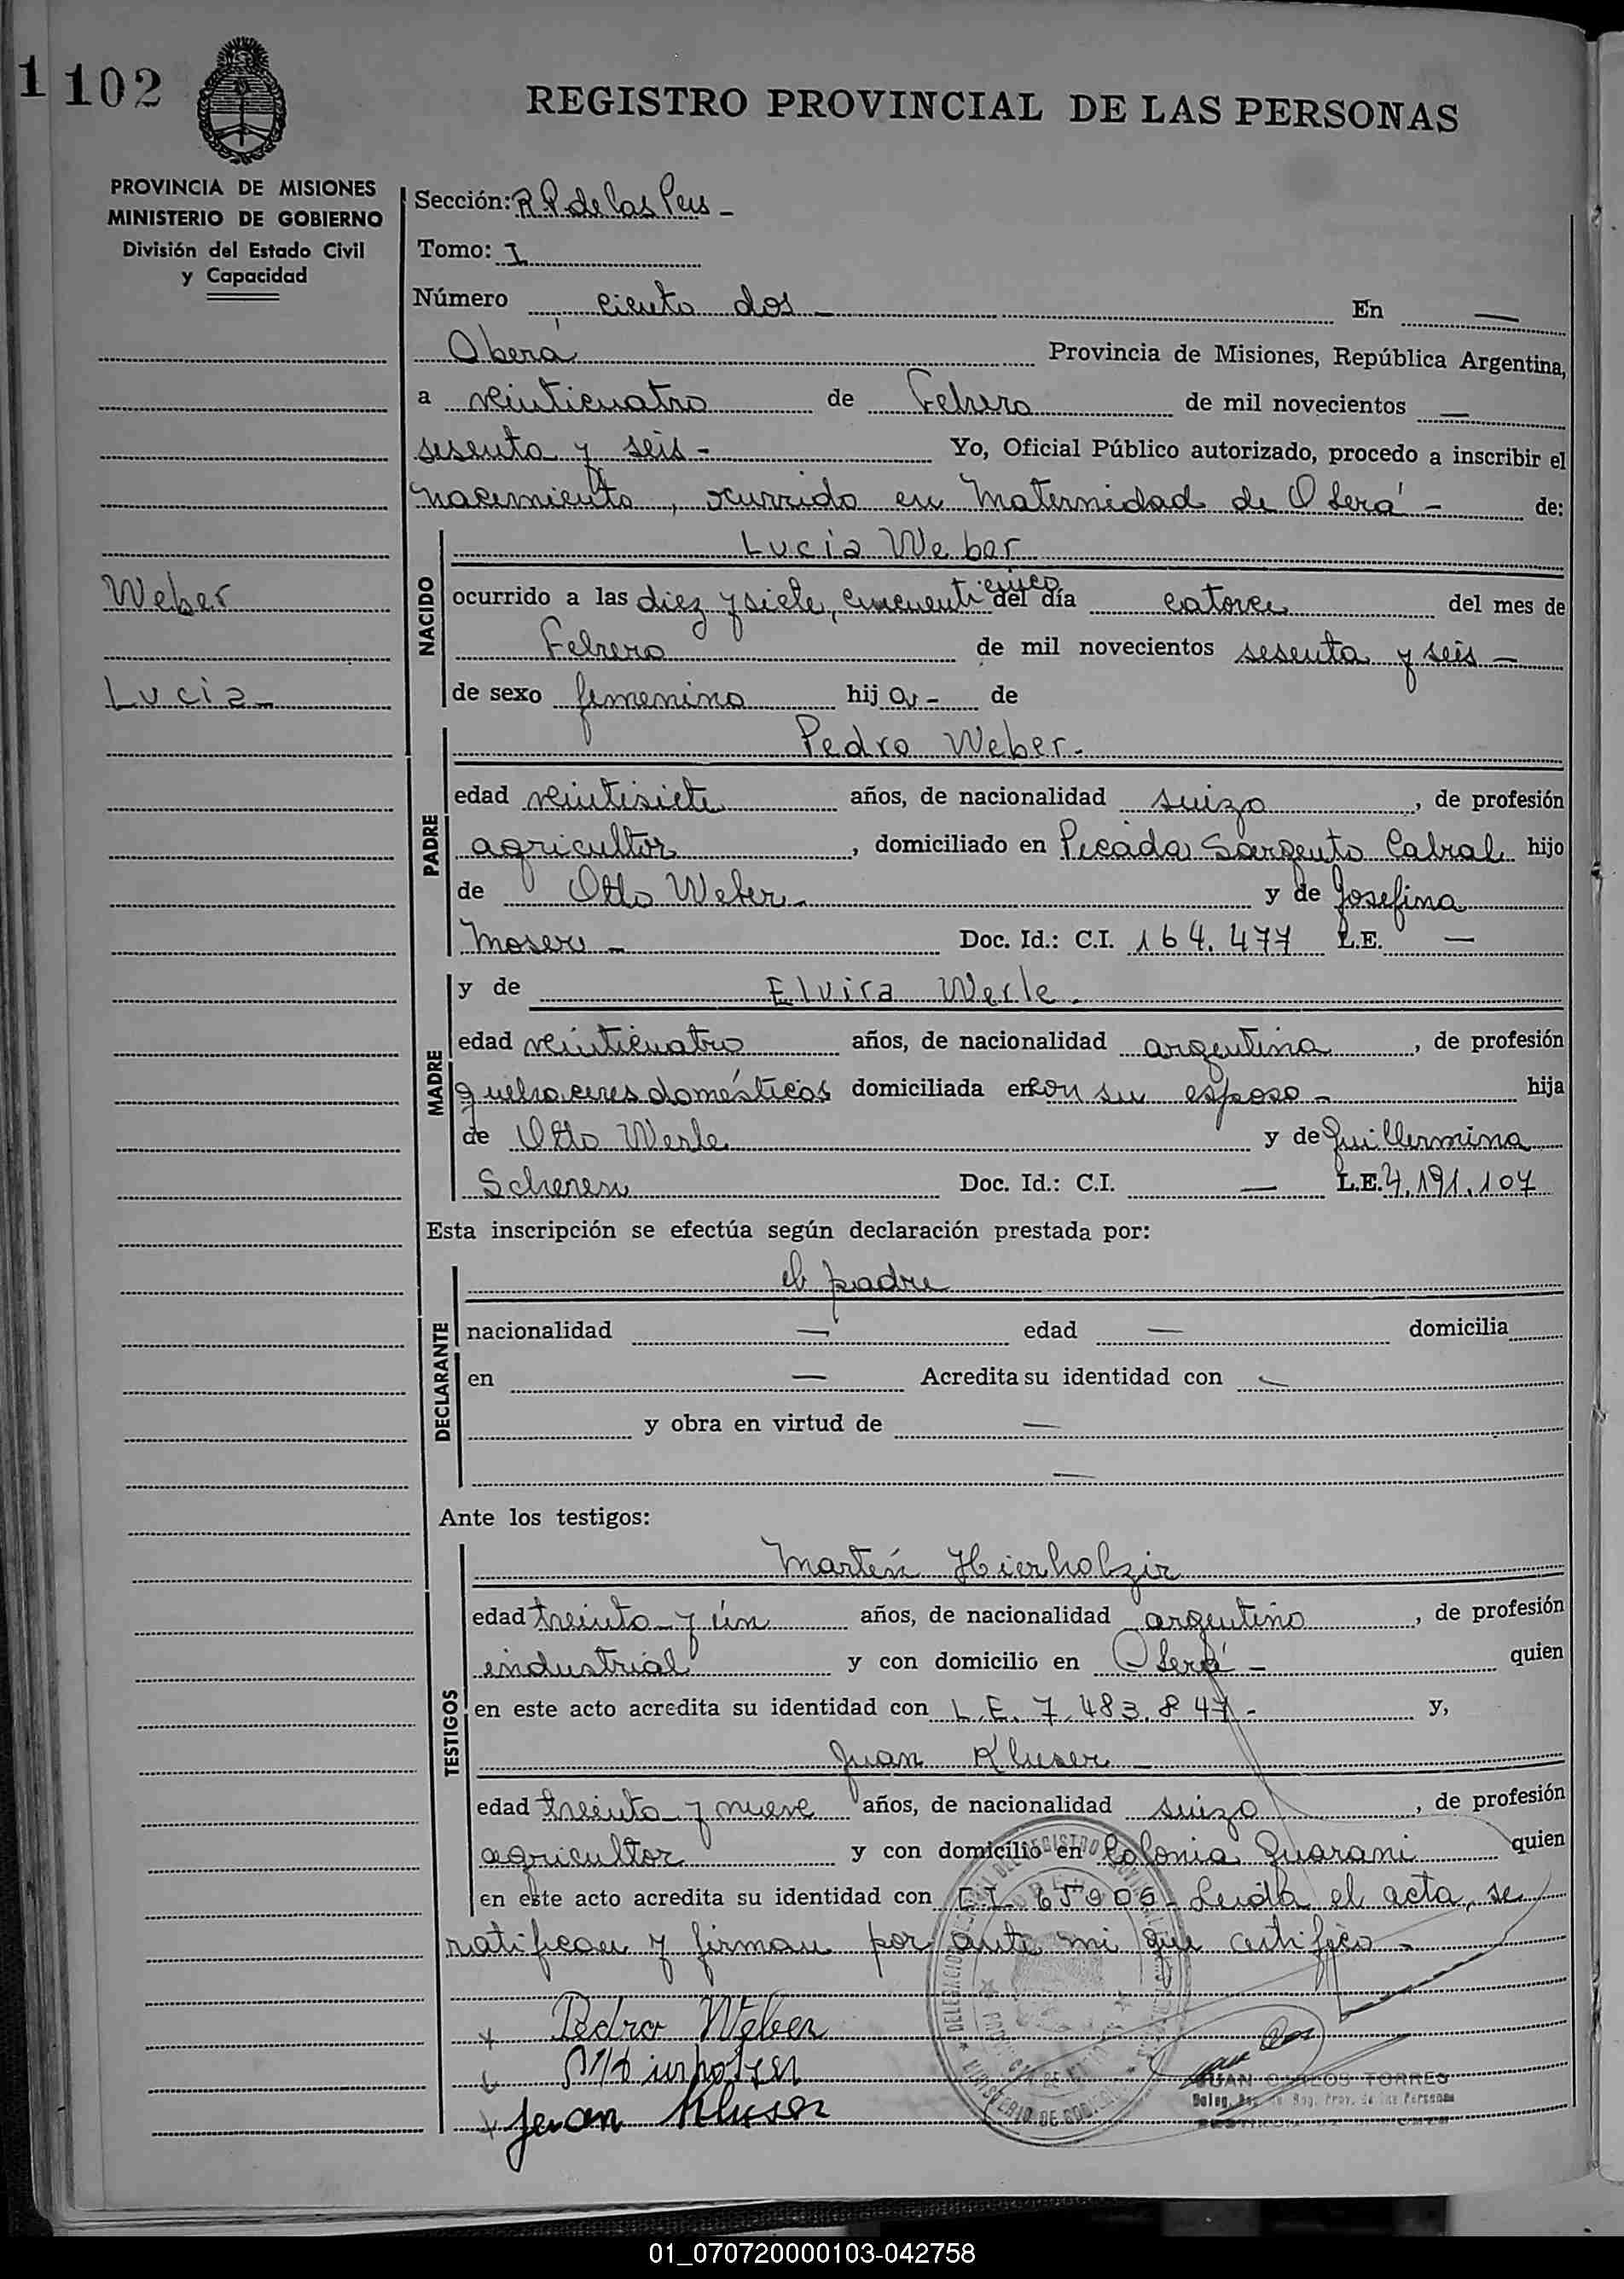 1 102
REGISTRO PROVINCIAL DE LAS PERSONAS
PROVINCIA DE MISIONES
MINISTERIO DE GOBIERNO
División del Estado Civil
y Capacidad
Weber
Lucia
Sección: R P de las Pers -
Tomo: I
Número ciento dos - En —
Oberá Provincia de Misiones, República Argentina,
a veinticuatro de Febrero de mil novecientos —
sesenta y seis - Yo, Oficial Público autorizado, procedo a inscribir el
nacimiento, ocurrido en Maternidad de Oberá - de:
NACIDO
Lucia Weber
ocurrido a las diez y siete, cincuenti cinco del día catorce del mes de
Febrero de mil novecientos sesenta y seis -
de sexo femenino hij a - de
PADRE
Pedro Weber.
edad veintisiete años, de nacionalidad suizo, de profesión
agricultor, domiciliado en Picada Sargento Cabral hijo
de Otto Weber. y de Josefina
Moser - Doc. Id.: C.I. 164.477 L.E. —
MADRE
y de Elvira Werle.
edad veinticuatro años, de nacionalidad argentina, de profesión
quehaceres domésticos domiciliada en con su esposo - hija
de Otto Werle y de Guillermina
Scherer Doc. Id.: C.I. — L.E. 4.191.107
Esta inscripción se efectúa según declaración prestada por:
DECLARANTE
el padre
nacionalidad — edad — domicilia
en — Acredita su identidad con —
y obra en virtud de —
—
Ante los testigos:
TESTIGOS
Martín Hierholzer
edad treinta y un años, de nacionalidad argentino, de profesión
industrial y con domicilio en Oberá - quien
en este acto acredita su identidad con L.E. 7.483.847 - y,
Juan Kluser
edad treinta y nueve años, de nacionalidad suizo, de profesión
agricultor y con domicilio en Colonia Guarani quien
en este acto acredita su identidad con C.I. 65906 - Leida el acta, se
ratifican y firman por ante mi que certifico -
Pedro Weber
Juan Kluser
JUAN CARLOS TORRES
Reg. Prov. de las Personas
01_070720000103-042758